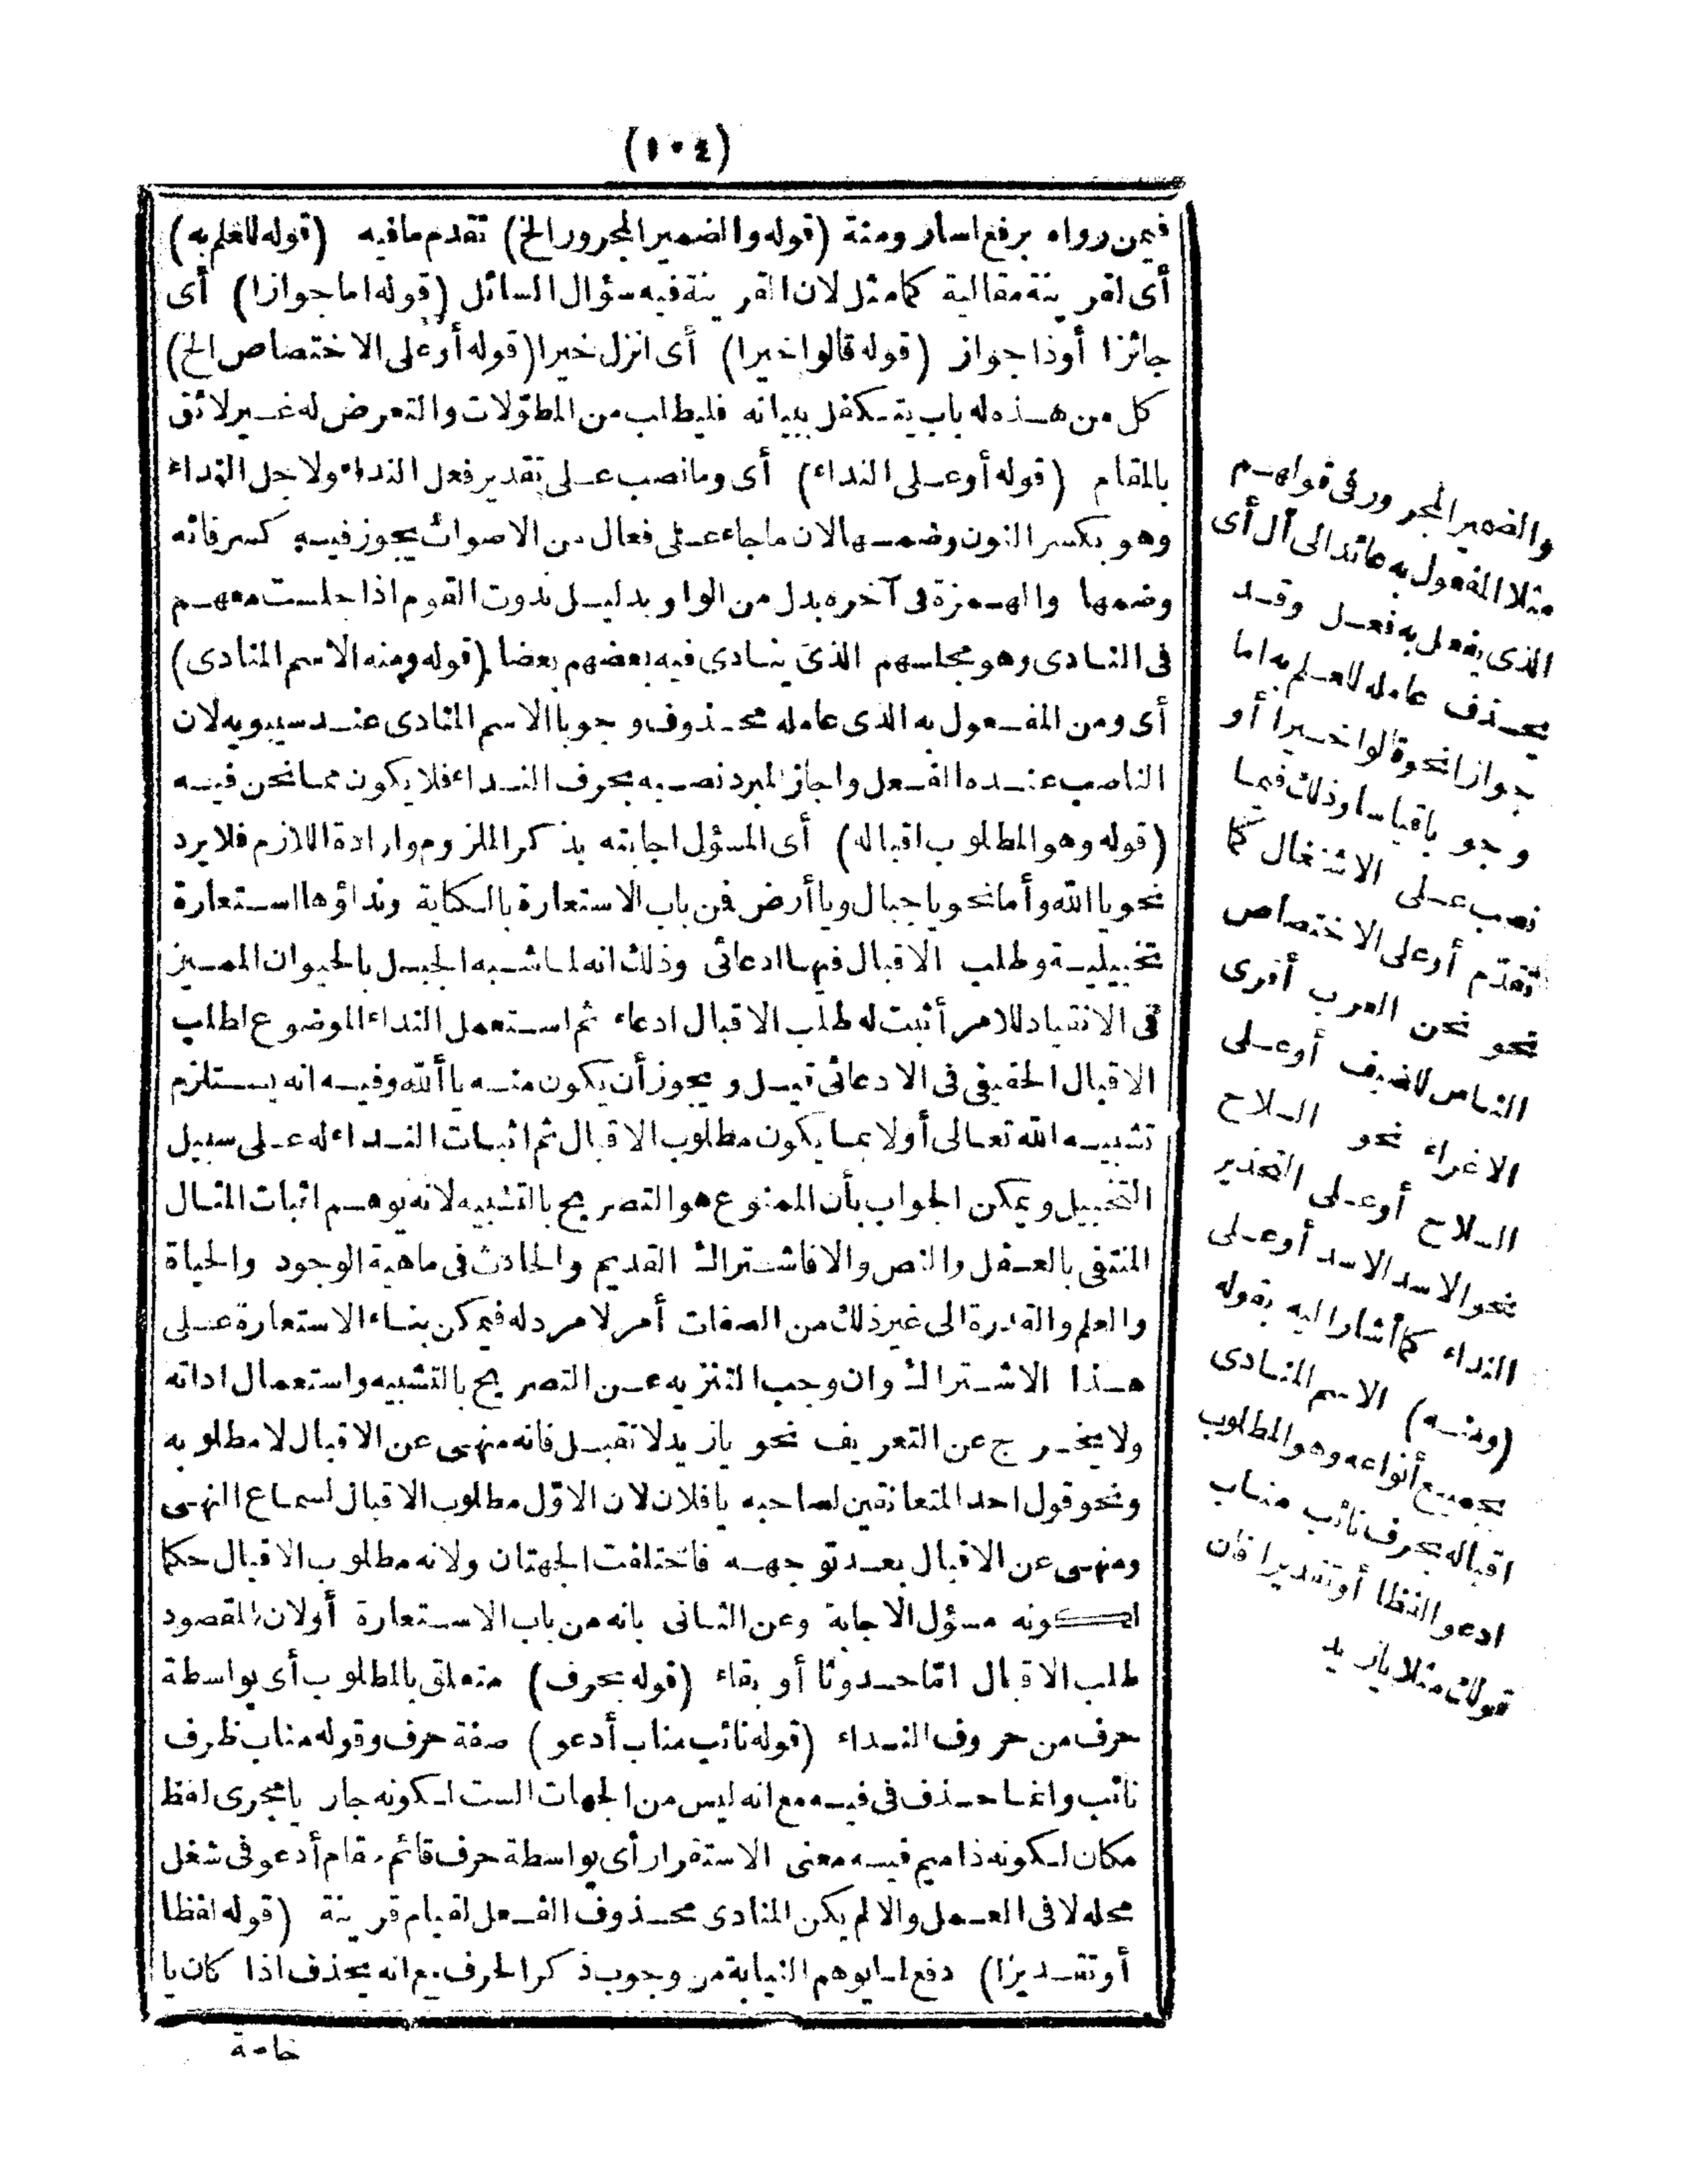 (١٠٤)
فيمن رواه برفع اسار ومنة (قوله والضمير المجرور الخ) تقدم مافيه (قوله للعلم به)
أى لقرينة مقالية كمامثل لان القرينة فيه سؤال السائل (قوله اما جوازا) أى
جائزا أوذا جواز (قوله قالوا خيرا) أى انزل خيرا (قوله أوعلى الاختصاص الخ)
كل من هذه له باب يتكفل ببيانه فليطلب من المطوّلات والتعرض له غير لائق
بالمقام (قوله أوعلى النداء) أى ومانصب على تقدير فعل النداء ولاجل النداء
وهو بكسر النون وضمها لان ماجاء على فعال من الاصوات يجوز فيه كسر فائه
وضمها والهمزة فى آخره بدل من الواو بدليل ندوت القوم اذا جلست معهم
فى النادى وهو مجلسهم الذى ينادى فيه بعضهم بعضا (قوله ومنه الاسم المنادى)
أى ومن المفعول به الذى عامله محذوف وجوبا الاسم المنادى عند سيبويه لان
الناصب عنده الفعل واجاز المبرد نصبه بحرف النداء فلا يكون مما نحن فيه
(قوله وهو المطلوب اقباله) أى المسؤل اجابته بذكر الملزوم وارادة اللازم فلا يرد
نحو يا الله وأما نحو يا جبال ويا أرض فمن باب الاستعارة بالكناية ونداؤها استعارة
تخييلية وطلب الاقبال فيها ادعائى وذلك انه لما شبه الجبل بالحيوان المميز
فى الانقياد للامر أثبت له طلب الاقبال ادعاء ثم استعمل النداء الموضوع لطلب
الاقبال الحقيقى فى الادعائى قيل ويجوز أن يكون منه يا ألله وفيه انه يستلزم
تشبيه الله تعالى أولا بما يكون مطلوب الاقبال ثم اثبات النداء له على سبيل
التخييل ويمكن الجواب بأن الممنوع هو التصريح بالتشبيه لانه يوهم اثبات المثال
المنتفى بالعقل والنص والا فاشتراك القديم والحادث فى ماهية الوجود والحياة
والعلم والقدرة الى غير ذلك من الصفات أمر لا مرد له فيمكن بناء الاستعارة على
هذا الاشتراك وان وجب التنزيه عن التصريح بالتشبيه واستعمال اداته
ولا يخرج عن التعريف نحو يا زيد لا تقبل فانه منهى عن الاقبال لا مطلوبه
ونحو قول احد المتعانقين لصاحبه يا فلان لان الاوّل مطلوب الاقبال لسماع النهى
ومنهى عن الاقبال بعد توجهه فاختلفت الجهتان ولانه مطلوب الاقبال حكما
لكونه مسؤل الاجابة وعن الثانى بانه من باب الاستعارة أولان المقصود
طلب الاقبال امّا حدوثا أو بقاء (قوله بحرف) متعلق بالمطلوب أى بواسطة
حرف من حروف النداء (قوله نائب مناب أدعو) صفة حرف وقوله مناب ظرف
نائب وانما حذف فى فيه مع انه ليس من الجهات الست لكونه جار يا مجرى لفظ
مكان لكونه ذا ميم فيه معنى الاستقرار أى بواسطة حرف قائم مقام أدعو فى شغل
محله لا فى العمل والا لم يكن المنادى محذوف الفعل لقيام قرينة (قوله لفظا
أو تقديرا) دفع لما يوهم النيابة من وجوب ذكر الحرف مع انه يحذف اذا كان يا
خاصة
والضمير المجرور فى قولهم
مثلا المفعول به عائد الى أل أى
الذى يفعل به فعل وقد
يحذف عامله للعلم به اما
جوازا نحو قالوا خيرا أو
وجوبا قياسا وذلك فيما
نصب على الاشتغال كما
تقدّم أوعلى الاختصاص
نحو نحن العرب أقرى
الناس للضيف أوعلى
الاغراء نحو السلاح
السلاح أوعلى التحذير
نحو الاسد الاسد أوعلى
النداء كما أشار اليه بقوله
(ومنه) الاسم المنادى
بجميع أنواعه وهو المطلوب
اقباله بحرف نائب مناب
ادعو لفظا أوتقديرا فان
قولك مثلا يا زيد